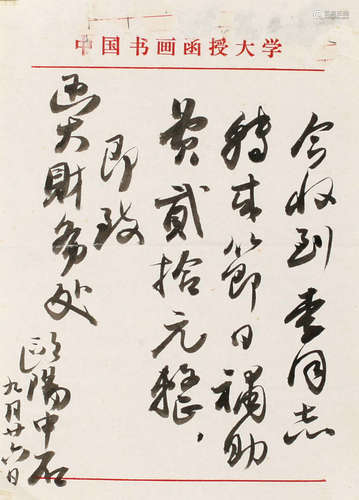 中国书画函授大学
今收到李同志
转来節日補助
黄贰拾元整，
即致
函大財务处
歐陽中石
九月廿六日